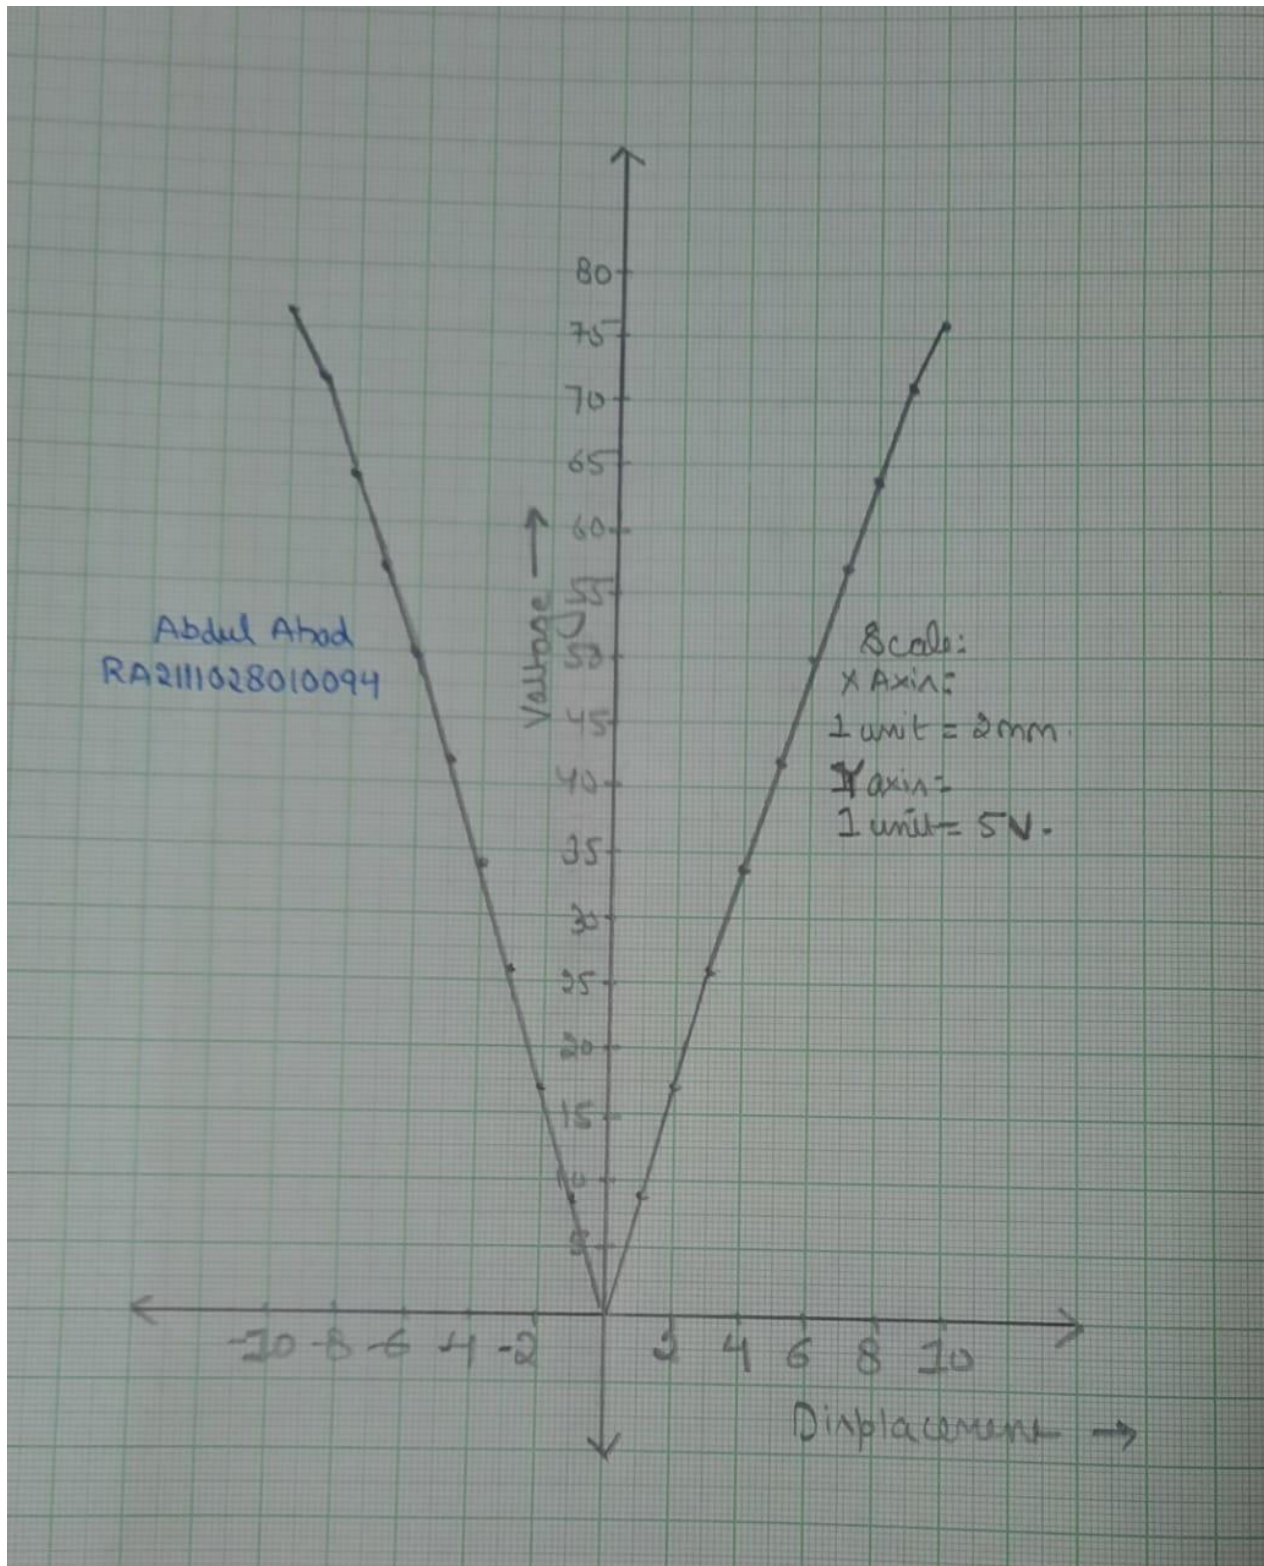 80
75
70
65
60
55
50
45
40
35
30
25
20
15
10
5
Voltage →
Abdul Ahad
RA2111028010094
Scale:
X Axis:
1 unit = 2mm.
Y axis=
1 unit = 5V.
-10 -8 -6 -4 -2 2 4 6 8 10
Displacement →